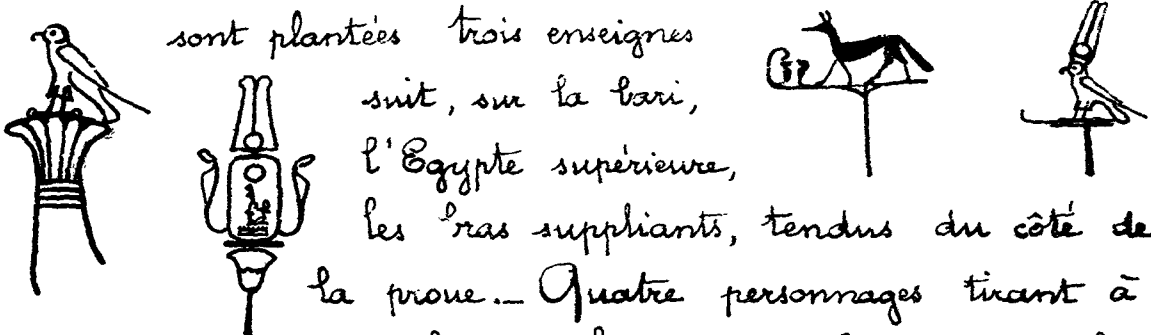 sont plantées trois enseignes
suit, sur la bari,
l'Egypte supérieure,
les bras suppliants, tendus du côté de
la proue._ Quatre personnages tirant à